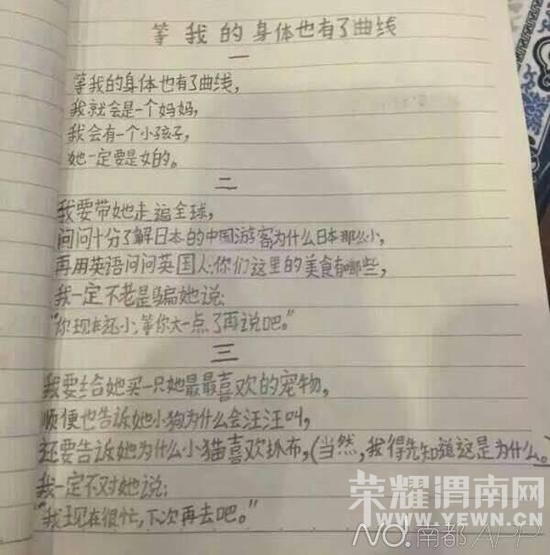 等我的身体也有了曲线
一
等我的身体也有了曲线,
我就会是一个妈妈,
我会有一个小孩子,
她一定要是女的。
二
我要带她走遍全球,
问问十分了解日本的中国游客为什么日本那么小,
再用英语问问英国人:你们这里的美食有哪些,
我一定不老是骗她说:
“你现在还小,等你大一点了再说吧。”
三
我要给她买一只她最最喜欢的宠物,
顺便也告诉她小狗为什么会汪汪叫,
还要告诉她为什么小猫喜欢抓布,(当然,我得先知道这是为什么。
我一定不对她说:
“我现在很忙,下次再去吧。”
荣耀渭南网
WWW.YEWN.CN
NO.南都APP